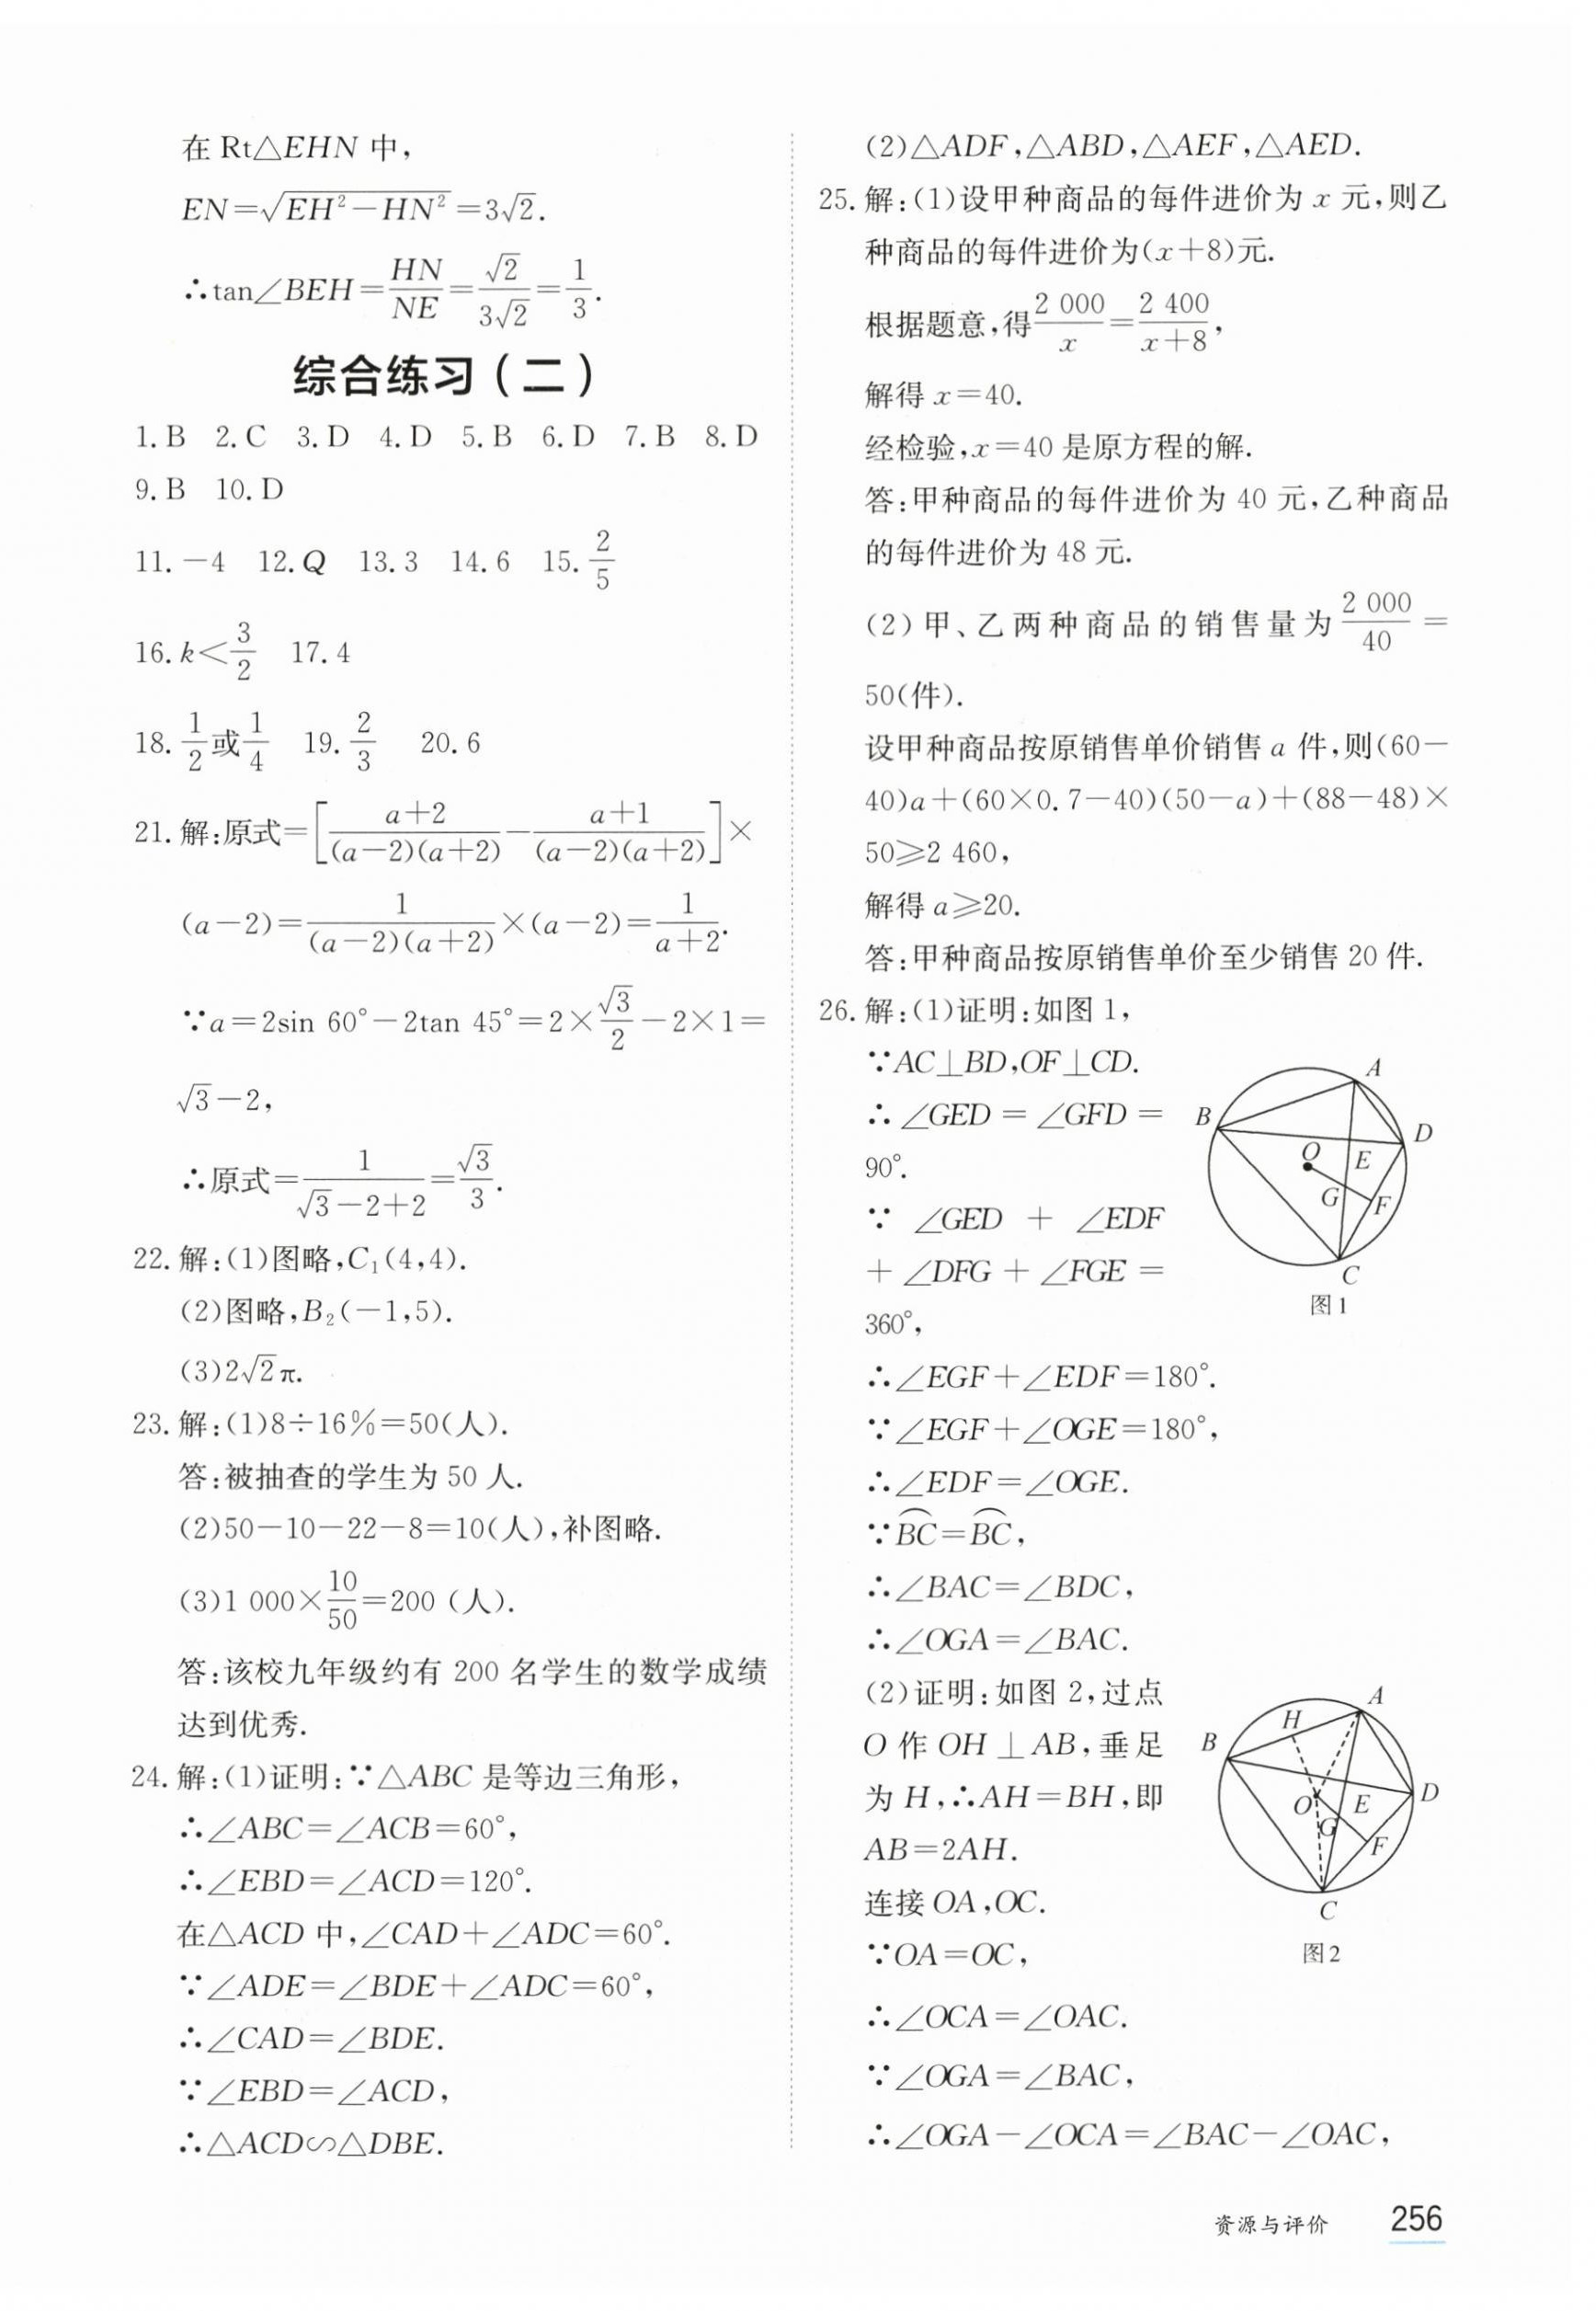 在 Rt△EHN 中,
EN=√(EH²−HN²)=3√2.
∴tan∠BEH=HN/NE=√2/(3√2)=1/3.
综合练习(二)
1. B 2. C 3. D 4. D 5. B 6. D 7. B 8. D
9. B 10. D
11. −4 12. Q 13. 3 14. 6 15. 2/5
16. k<3/2 17. 4
18. 1/2或1/4 19. 2/3 20. 6
21. 解:原式=[(a+2)/((a−2)(a+2))−(a+1)/((a−2)(a+2))]×
(a−2)=1/((a−2)(a+2))×(a−2)=1/(a+2).
∵a=2sin 60°−2tan 45°=2×√3/2−2×1=
√3−2,
∴原式=1/(√3−2+2)=√3/3.
22. 解:(1)图略,C₁(4,4).
(2)图略,B₂(−1,5).
(3)2√2π.
23. 解:(1)8÷16%=50(人).
答:被抽查的学生为 50 人.
(2)50−10−22−8=10(人),补图略.
(3)1 000×10/50=200 (人).
答:该校九年级约有 200 名学生的数学成绩
达到优秀.
24. 解:(1)证明:∵△ABC 是等边三角形,
∴∠ABC=∠ACB=60°,
∴∠EBD=∠ACD=120°.
在△ACD 中,∠CAD+∠ADC=60°.
∵∠ADE=∠BDE+∠ADC=60°,
∴∠CAD=∠BDE.
∵∠EBD=∠ACD,
∴△ACD∽△DBE.
(2)△ADF,△ABD,△AEF,△AED.
25. 解:(1)设甲种商品的每件进价为 x 元,则乙
种商品的每件进价为(x+8)元.
根据题意,得2 000/x=2 400/(x+8),
解得 x=40.
经检验,x=40 是原方程的解.
答:甲种商品的每件进价为 40 元,乙种商品
的每件进价为 48 元.
(2)甲、乙两种商品的销售量为2 000/40=
50(件).
设甲种商品按原销售单价销售 a 件,则(60−
40)a+(60×0.7−40)(50−a)+(88−48)×
50≥2 460,
解得 a≥20.
答:甲种商品按原销售单价至少销售 20 件.
26. 解:(1)证明:如图 1,
∵AC⊥BD,OF⊥CD.
∴∠GED=∠GFD=
90°.
∵∠GED+∠EDF
+∠DFG+∠FGE=
360°,
A
B
D
O
E
G
F
C
图1
∴∠EGF+∠EDF=180°.
∵∠EGF+∠OGE=180°,
∴∠EDF=∠OGE.
∵⌒BC=⌒BC,
∴∠BAC=∠BDC,
∴∠OGA=∠BAC.
(2)证明:如图 2,过点
O 作 OH⊥AB,垂足
为 H,∴AH=BH,即
AB=2AH.
连接 OA,OC.
∵OA=OC,
A
H
B
D
O
E
G
F
C
图2
∴∠OCA=∠OAC.
∵∠OGA=∠BAC,
∴∠OGA−∠OCA=∠BAC−∠OAC,
资源与评价 256